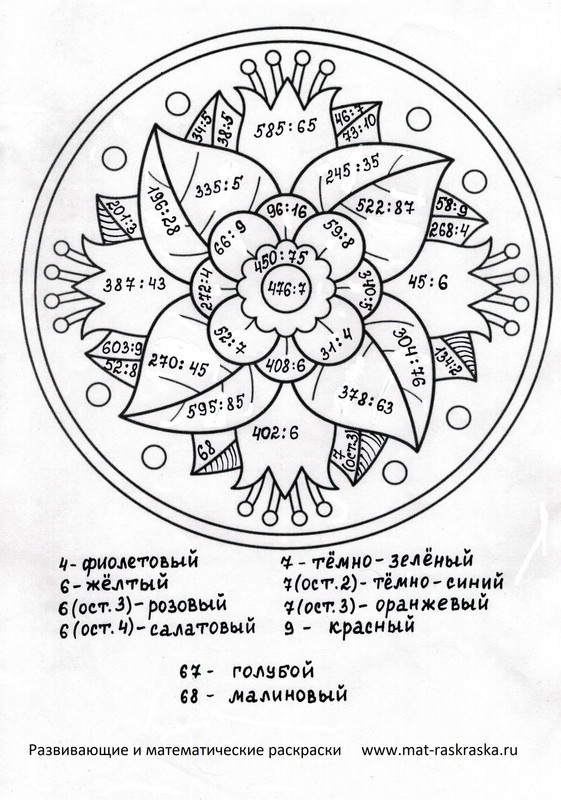 585:65
34:5
38:5
46:7
73:10
335:5
245:35
196:28
522:87
201:3
58:9
268:4
96:16
66:9
59:8
450:75
476:7
387:43
272:4
340:5
45:6
603:9
52:8
52:7
31:4
304:76
134:2
270:45
408:6
378:63
595:85
402:6
68
7 (ост.3)
4 - фиолетовый
6 - жёлтый
6 (ост.3) - розовый
6 (ост.4) - салатовый
7 - тёмно-зелёный
7 (ост.2) - тёмно-синий
7 (ост.3) - оранжевый
9 - красный
67 - голубой
68 - малиновый
Развивающие и математические раскраски www.mat-raskraska.ru